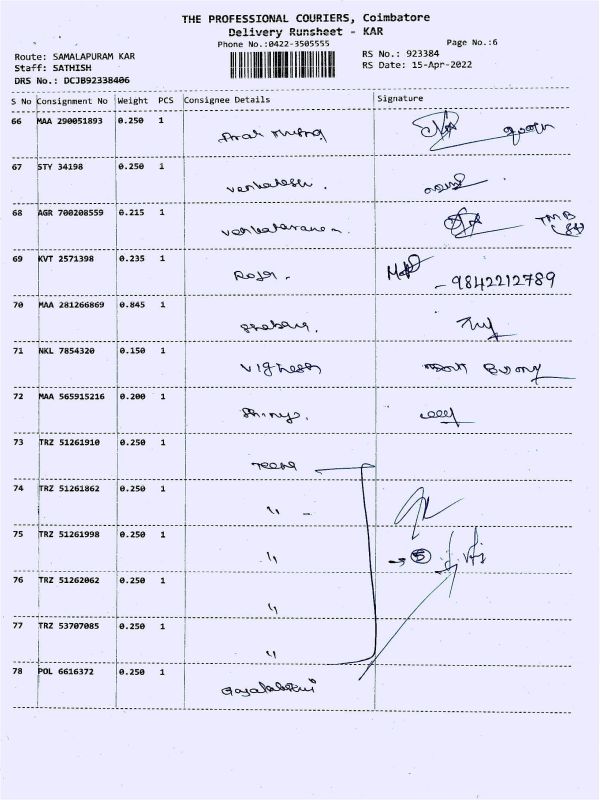 THE PROFESSIONAL COURIERS, Coimbatore
Delivery Runsheet - KAR
Phone No.:0422-3505555
Page No.:6
Route: SAMALAPURAM KAR
RS No.: 923384
Staff: SATHISH
RS Date: 15-Apr-2022
DRS No.: DCJB92338406
S No Consignment No Weight PCS Consignee Details Signature
66 MAA 290051893 0.250 1
67 STY 34198 0.250 1 venkatesh.
68 AGR 700208559 0.215 1 venkataraman. TMB
69 KVT 2571398 0.235 1 - 9842212789
70 MAA 281266869 0.845 1
71 NKL 7854320 0.150 1 vighesh
72 MAA 565915216 0.200 1
73 TRZ 51261910 0.250 1
74 TRZ 51261862 0.250 1 〃 -
75 TRZ 51261998 0.250 1 〃 → 5
76 TRZ 51262062 0.250 1 〃
77 TRZ 53707085 0.250 1 〃
78 POL 6616372 0.250 1